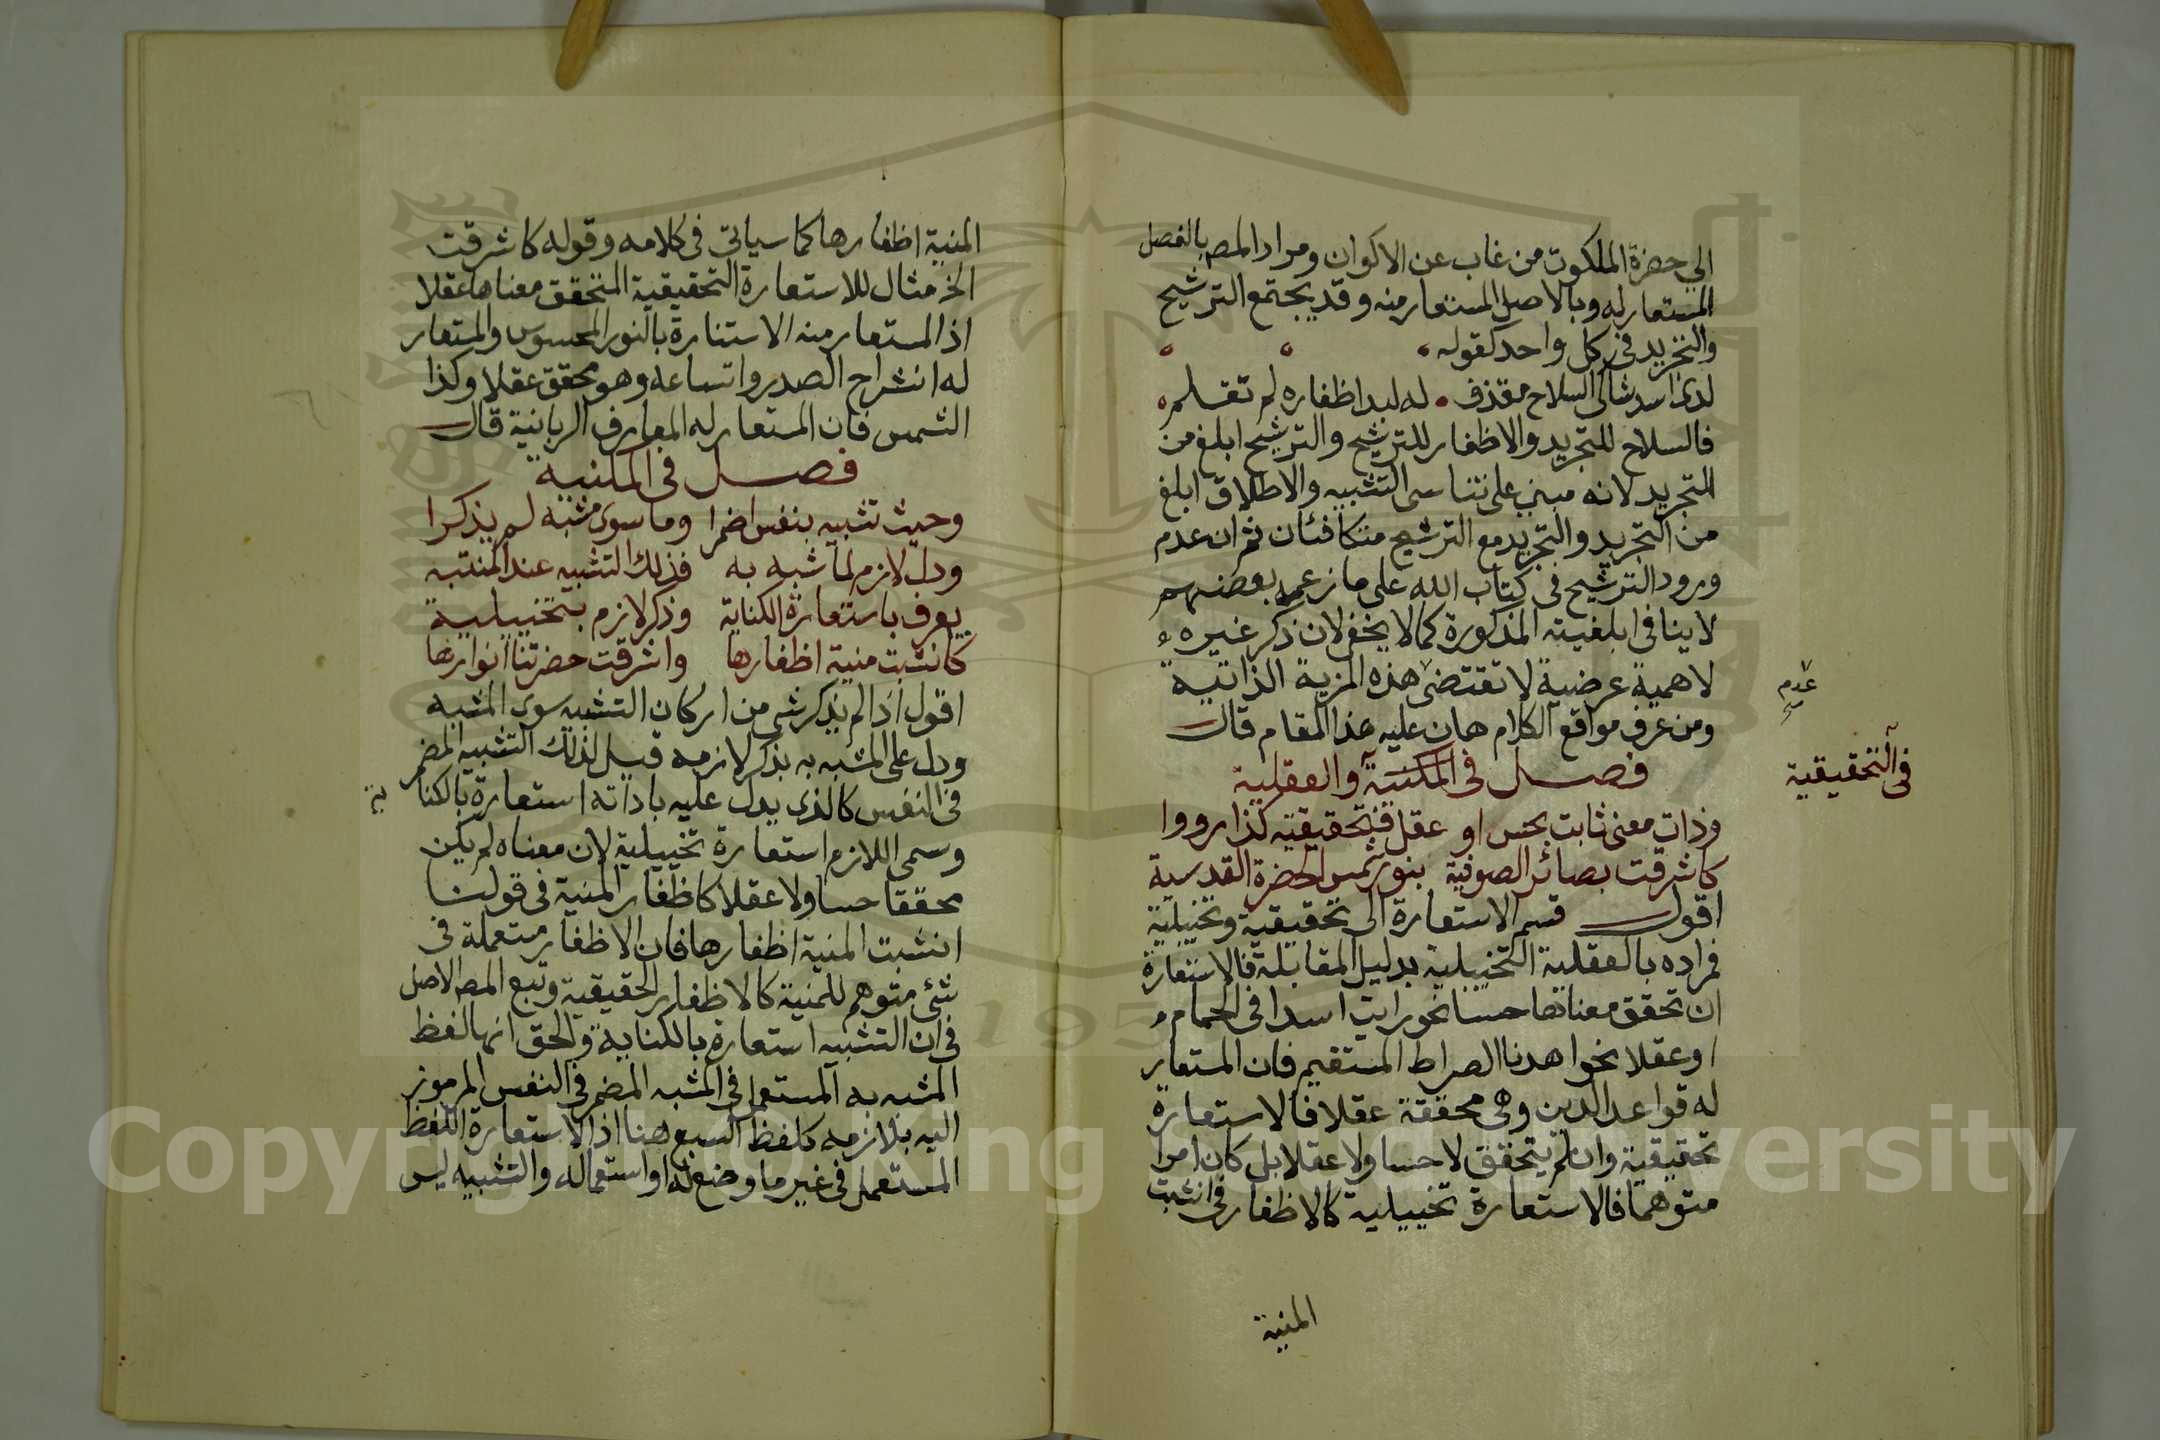 الي حضرة الملكوت من غاب عن الاكوان ومراد المص بالفصل
المستعار له وبالاصل المستعار منه وقد يجتمع الترشيح
والتجريد في كل واحد كقوله
لدى اسد شاكي السلاح مقذف له لبد اظفاره لم تقلم
فالسلاح للتجريد والاظفار للترشيح والترشيح ابلغ من
التجريد لانه مبني على تناسي التشبيه والاطلاق ابلغ
من التجريد والتجريد مع الترشيح متكافئان ثم ان عدم
ورود الترشيح في كتاب الله على ما زعمه بعضهم
لا ينافي ابلغيته المذكورة كما لا يخفى لان ذكر غيره
لاهمية عرضية لا تقتضى هذه المزية الذاتية
عدم
صح
ومن عرف مواقع الكلام هان عليه هذا المقام قال
فصل في المكنية والعقلية
في التحقيقية
وذات معنى ثابت بحس او عقل فتحقيقية كذا رووا
كاشرقت بصائر الصوفية بنور شمس الحضرة القدسية
اقول قسم الاستعارة الى تحقيقية وتخييلية
فمراده بالعقلية التخييلية بدليل المقابلة فالاستعارة
ان تحقق معناها حسا نحو رايت اسدا في الحمام
او عقلا نحو اهدنا الصراط المستقيم فان المستعار
له قواعد الدين وهي محققة عقلا فالاستعارة
تحقيقية وان لم يتحقق لا حسا ولا عقلا بل كان امرا
متوهما فالاستعارة تخييلية كالاظفار في انشبت
المنية
المنية اظفارها كما سياتي في كلامه وقوله كاشرقت
الخ مثال للاستعارة التحقيقية المتحقق معناها عقلا
اذ المستعار منه الاستنارة بالنور المحسوس والمستعار
له انشراح الصدر واتساعه وهو محقق عقلا وكذا
الشمس فان المستعار له المعارف الربانية قال
فصل في المكنية
وحيث تشبيه بنفس اضمرا وما سوى مشبه لم يذكرا
ودل لازم لما شبه به فذلك التشبيه عند المنتبه
يعرف باستعارة الكناية وذكر لازم بتخييلية
كانشبت منية اظفارها واشرقت حضرتنا انوارها
اقول اذا لم يذكر شي من اركان التشبيه سوى المشبه
ودل على المشبه به بذكر لازمه قيل لذلك التشبيه المضمر
في النفس كالذى يدل عليه باداته استعارة بالكنا
ية
وسمى اللازم استعارة تخييلية لان معناه لم يكن
محققا حسا ولا عقلا كاظفار المنية في قولنا
انشبت المنية اظفارها فان الاظفار مستعملة في
شئ متوهم للمنية كالاظفار الحقيقية وتبع المص الاصل
في ان التشبيه استعارة بالكناية والحق انها لفظ
المشبه به المستعمل في المشبه المضمر في النفس المرموز
اليه بلازمه كلفظ السبع هنا اذ الاستعارة اللفظ
المستعمل في غير ما وضع له او استعماله والتشبيه ليس
Copyright © King University
195